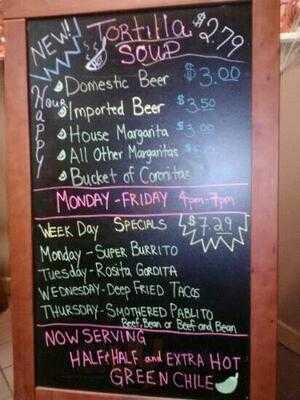 NEW!!
TORTILLA $2.79
SOUP
Happy Hour
Domestic Beer $3.00
Imported Beer $3.50
House Margarita $3.00
All Other Margaritas
Bucket of Coronitas
MONDAY-FRIDAY 4pm-7pm
WEEK DAY SPECIALS $7.29
Monday-SUPER BURRITO
Tuesday-Rosita GORDITA
WEDNESDAY-DEEP FRIED TACOS
THURSDAY-SMOTHERED PABLITO
Beef, Bean or Beef and Bean
NOW SERVING
HALF & HALF and EXTRA HOT
GREEN CHILE